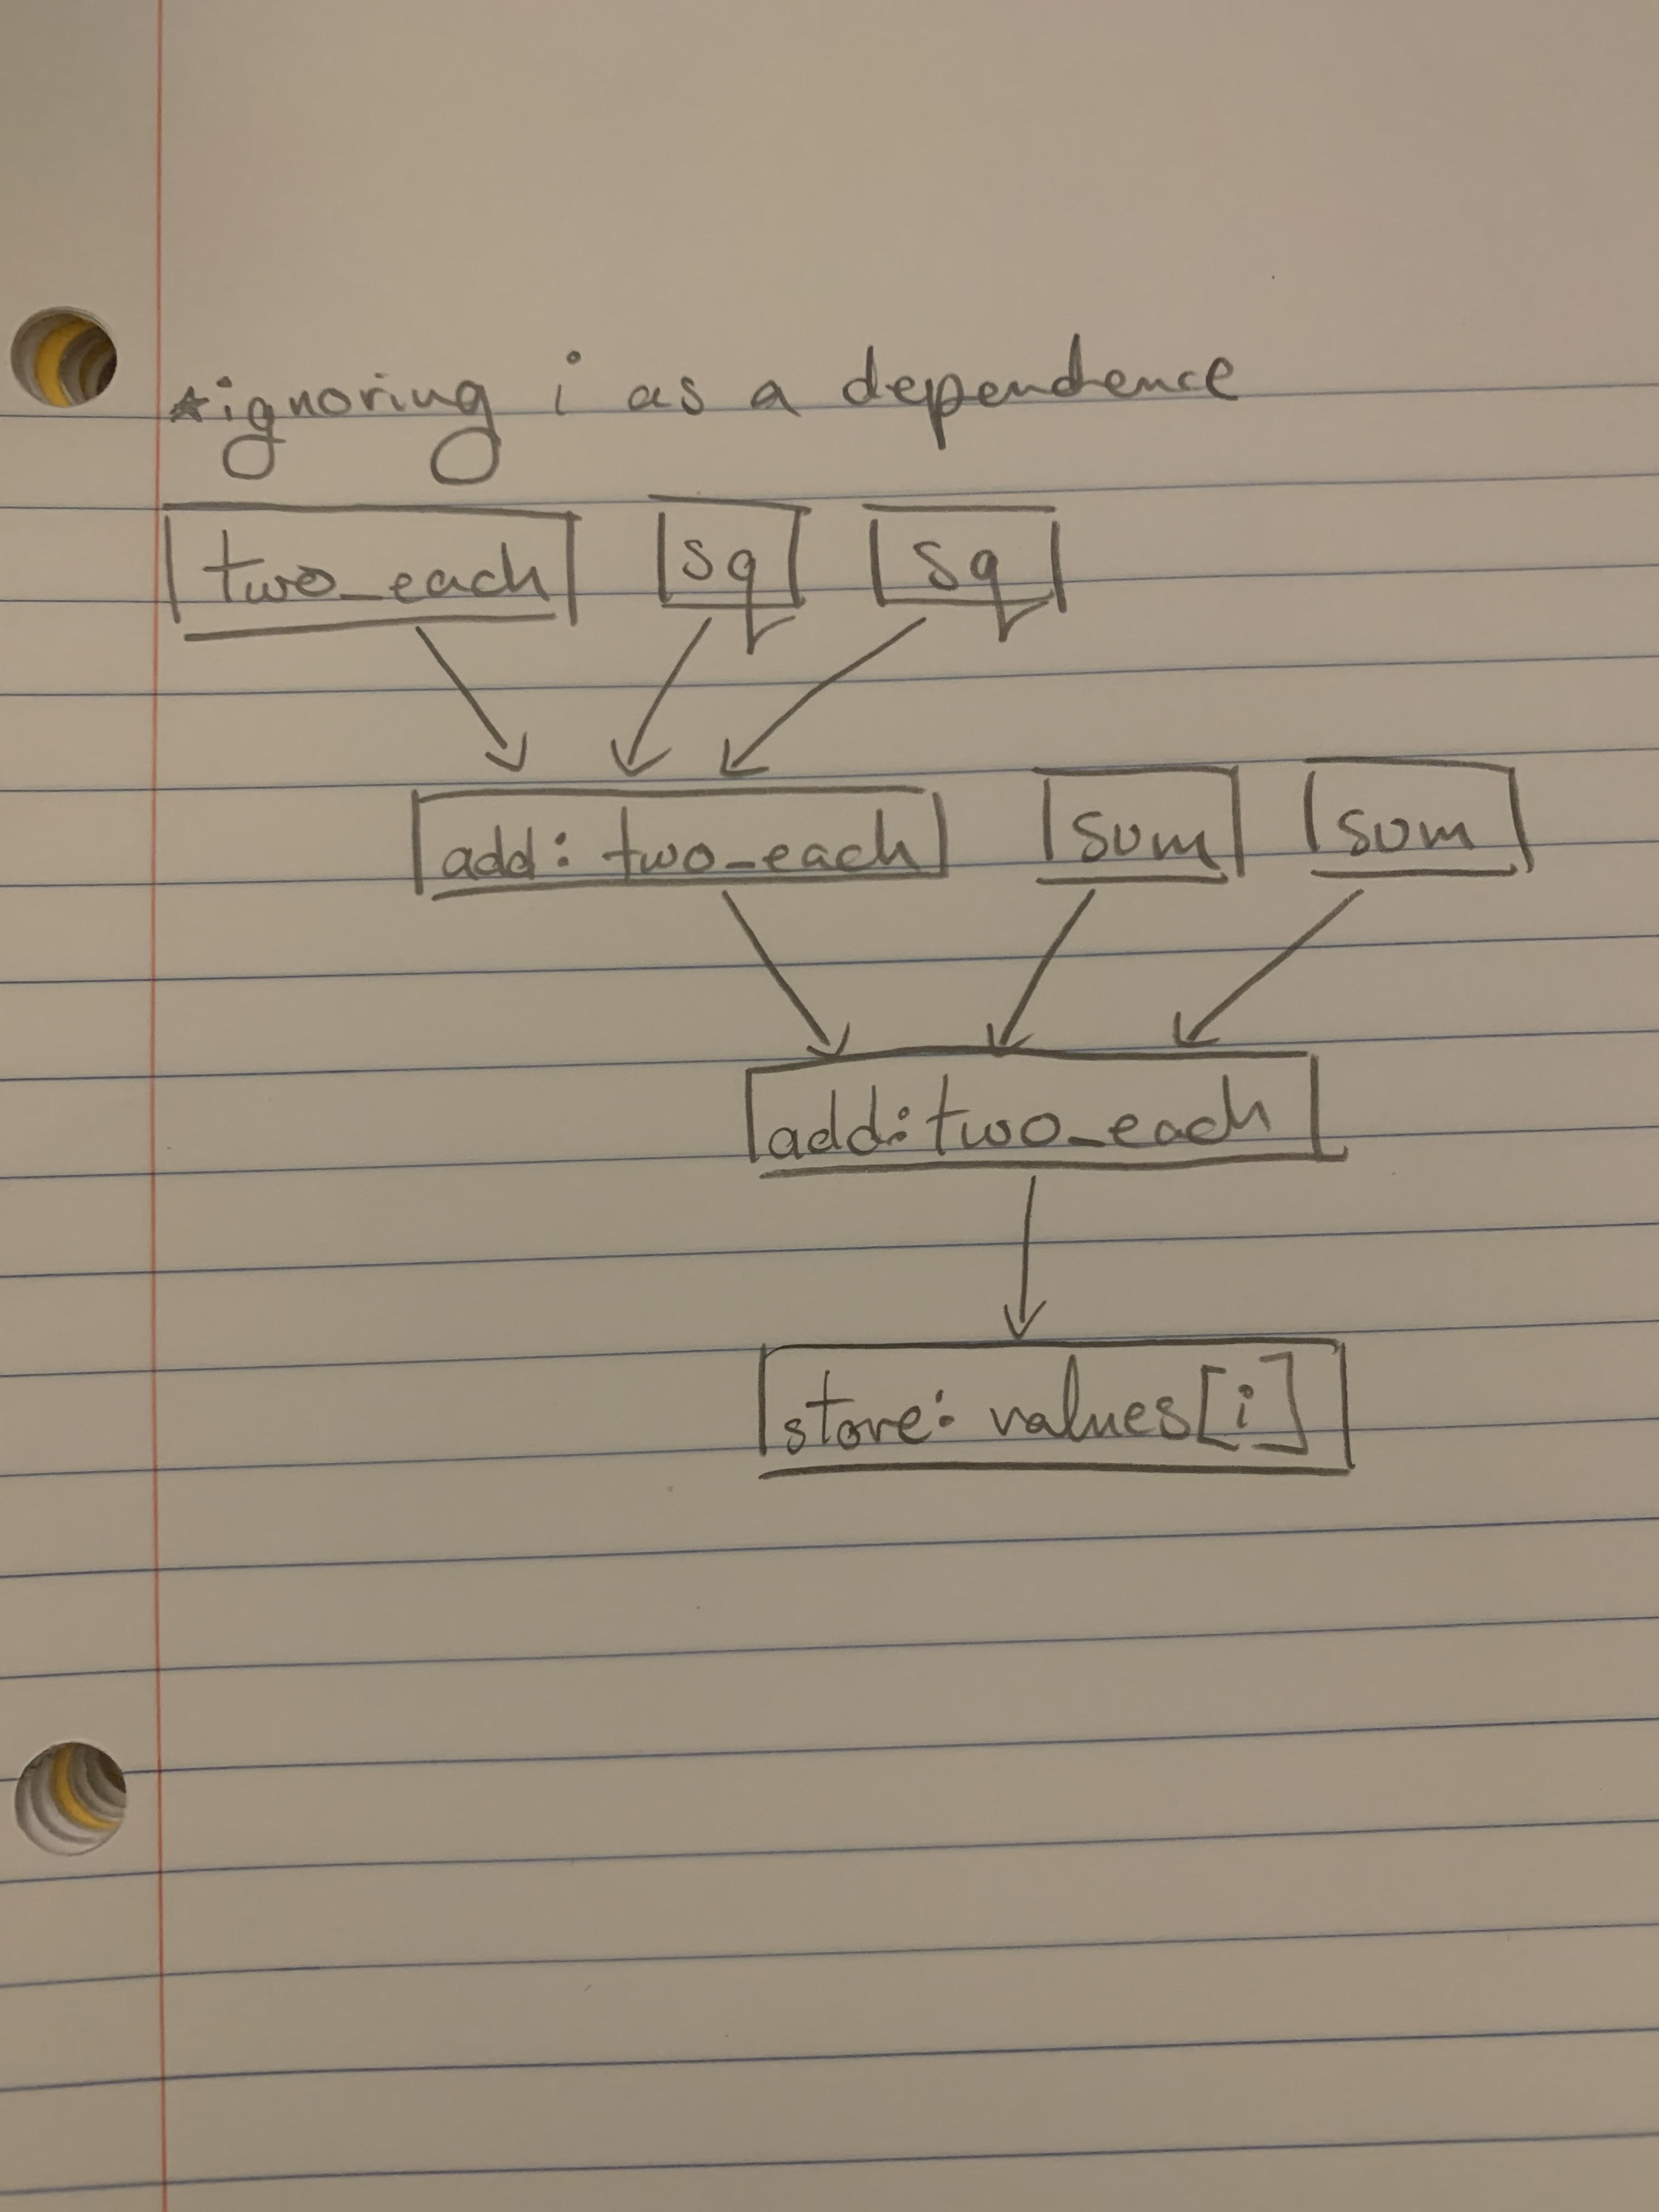 *ignoring i as a dependence
two_each sq sq
add: two_each sum sum
add: two_each
store: values[i]